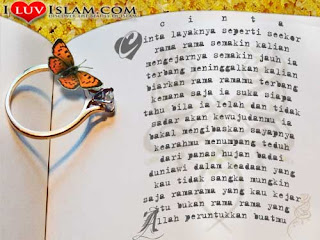 I LUV ISLAM.COM
DISCOVER ART THRU ISLAM
c i n t a
Cinta layaknya seperti seekor
rama rama semakin kalian
mengejarnya semakin jauh ia
terbang meninggalkan kalian
biarkan rama ramamu terbang
kemana saja ia suka siapa
tahu bila ia lelah dan tidak
sadar akan kewujudanmu ia
bakal mengibaskan sayapnya
kearahmu menumpang teduh
dari panas hujan badai
duniawi dalam keadaan yang
kau tidak sangka mungkin
saja ramarama yang kau kejar
itu bukan rama rama yang
Allah peruntukkan buatmu